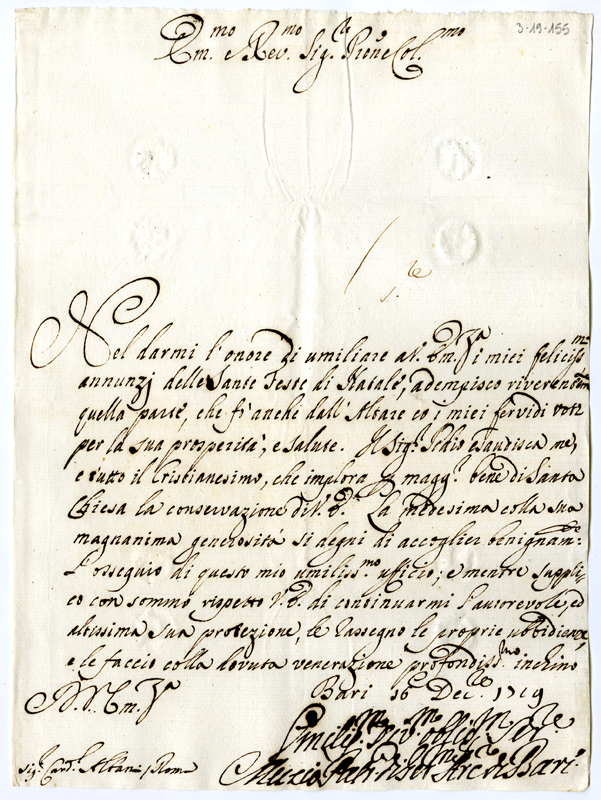 3-19-155
Em.mo e Rev.mo Sig.re P.rone Col.mo
Nel darmi l'onore di umiliare a V. Em.za i miei feliciss.mi
annunzj delle Sante Feste di Natale, adempisco riverentem.te
quella parte, che fò anche dall'Altare co i miei fervidi voti
per la sua prosperità, e salute. Il Sig.re Iddio esaudisca me,
e tutto il Cristianesimo, che implora p magg.r bene di Santa
Chiesa la conservazione di V. E. La medesima colla sua
magnanima generosità si degni di accoglier benignam.te
l'ossequio di questo mio umiliss.mo ufficio; e mentre suppli-
co con sommo rispetto V. E. di continuarmi l'autorevole, ed
altissima sua protezione, le rassegno le proprie ubbidienze,
e le faccio colla dovuta venerazione profondiss.mo inchino
D. V. Em.za Bari 16 Dec.re 1719
Umiliss.mo Dev.mo Obblig.mo Ser.re
Muzio Arc. di Bari
Sig.r Card. Altani / Roma